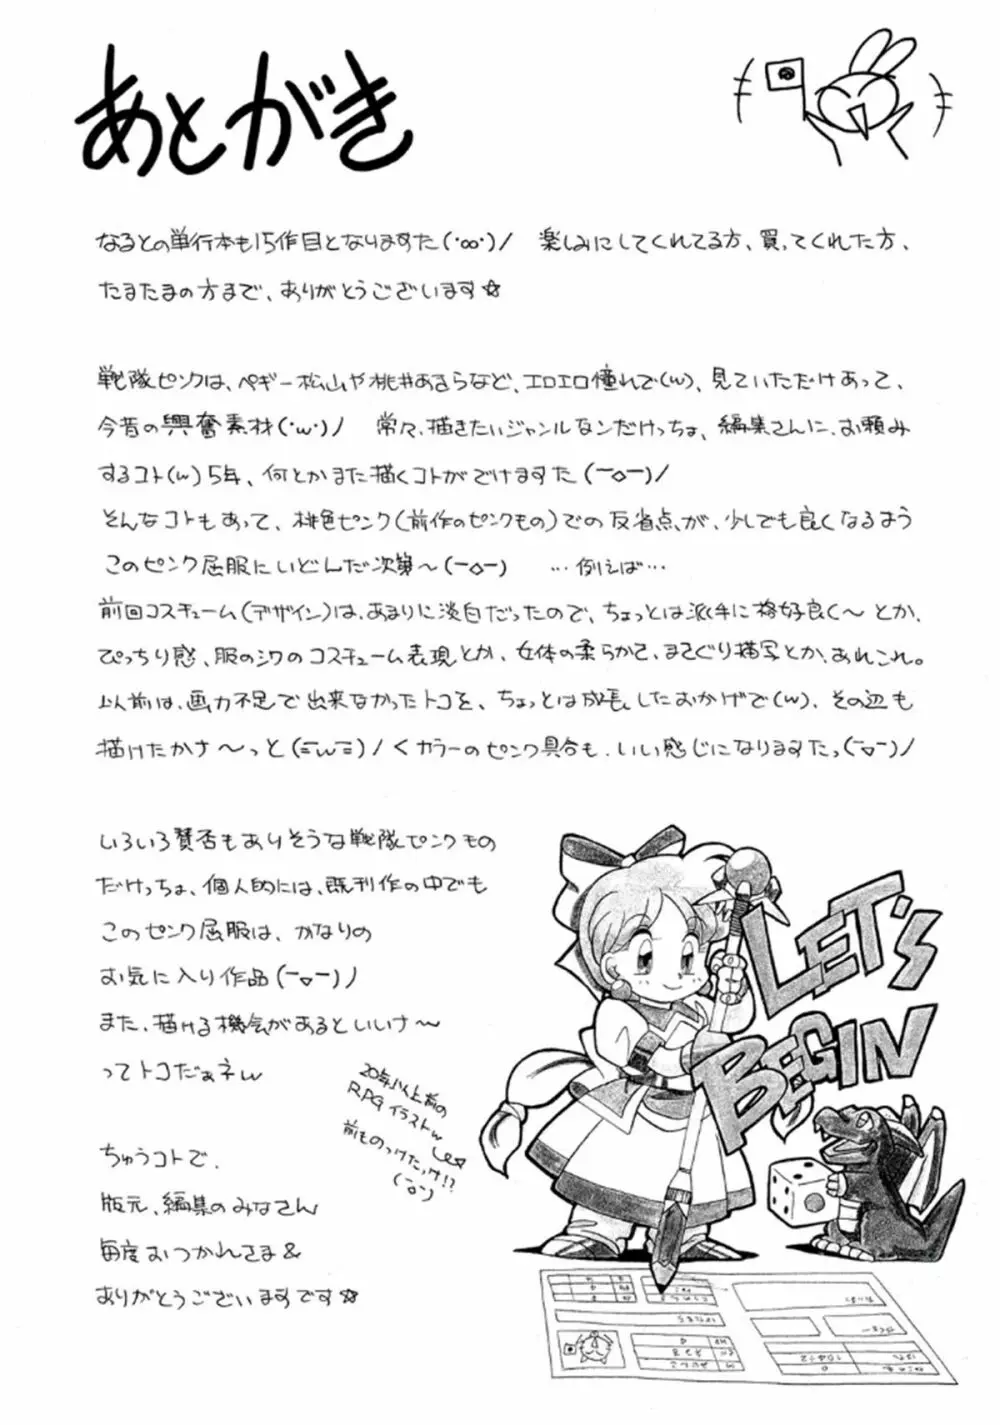 あとがき
なるとの単行本も15作目となりますた(・∞・)ノ　楽しみにしてくれてる方、買ってくれた方、
たまたまの方まで、ありがとうございます☆
戦隊ピンクは、ペギー松山や桃井あきらなど、エロエロ憧れで(w)、見ていただけあって、
今昔の興奮素材(・w・)ノ　常々、描きたいジャンルなンだけっちょ、編集さんに、お頼み
するコト(w)5年、何とかまた描くコトがでけますた(￣◇￣)ノ
そんなコトもあって、桃色ピンク(前作のピンクもの)での反省点が、少しでも良くなるよう
このピンク屈服にいどんだ次第～(￣◇￣)　…例えば…
前回コスチューム(デザイン)は、あまりに淡白だったので、ちょっとは派手に格好良く～とか、
ぴっちり感、服のシワのコスチューム表現とか、女体の柔らかさ、まさぐり描写とか、あれこれ。
以前は、画力不足で出来なかったトコを、ちょっとは成長したおかげで(w)、その辺も
描けたかナ～っと(≡w≡)ノ くカラーのピンク具合も、いい感じになりますたっ(￣▽￣)ノ
いろいろ賛否もありそうな戦隊ピンクもの
だけっちょ、個人的には、既刊作の中でも
このピンク屈服は、かなりの
お気に入り作品(￣▽￣)ノ
また、描ける機会があるといいナ～
ってトコだぁネw
20年以上前の
RPGイラストw
前ものっけたっけ!?
(￣o￣)
ちゅうコトで、
版元、編集のみなさん
毎度おつかれさま&
ありがとうございますです☆
LET'S
BEGIN